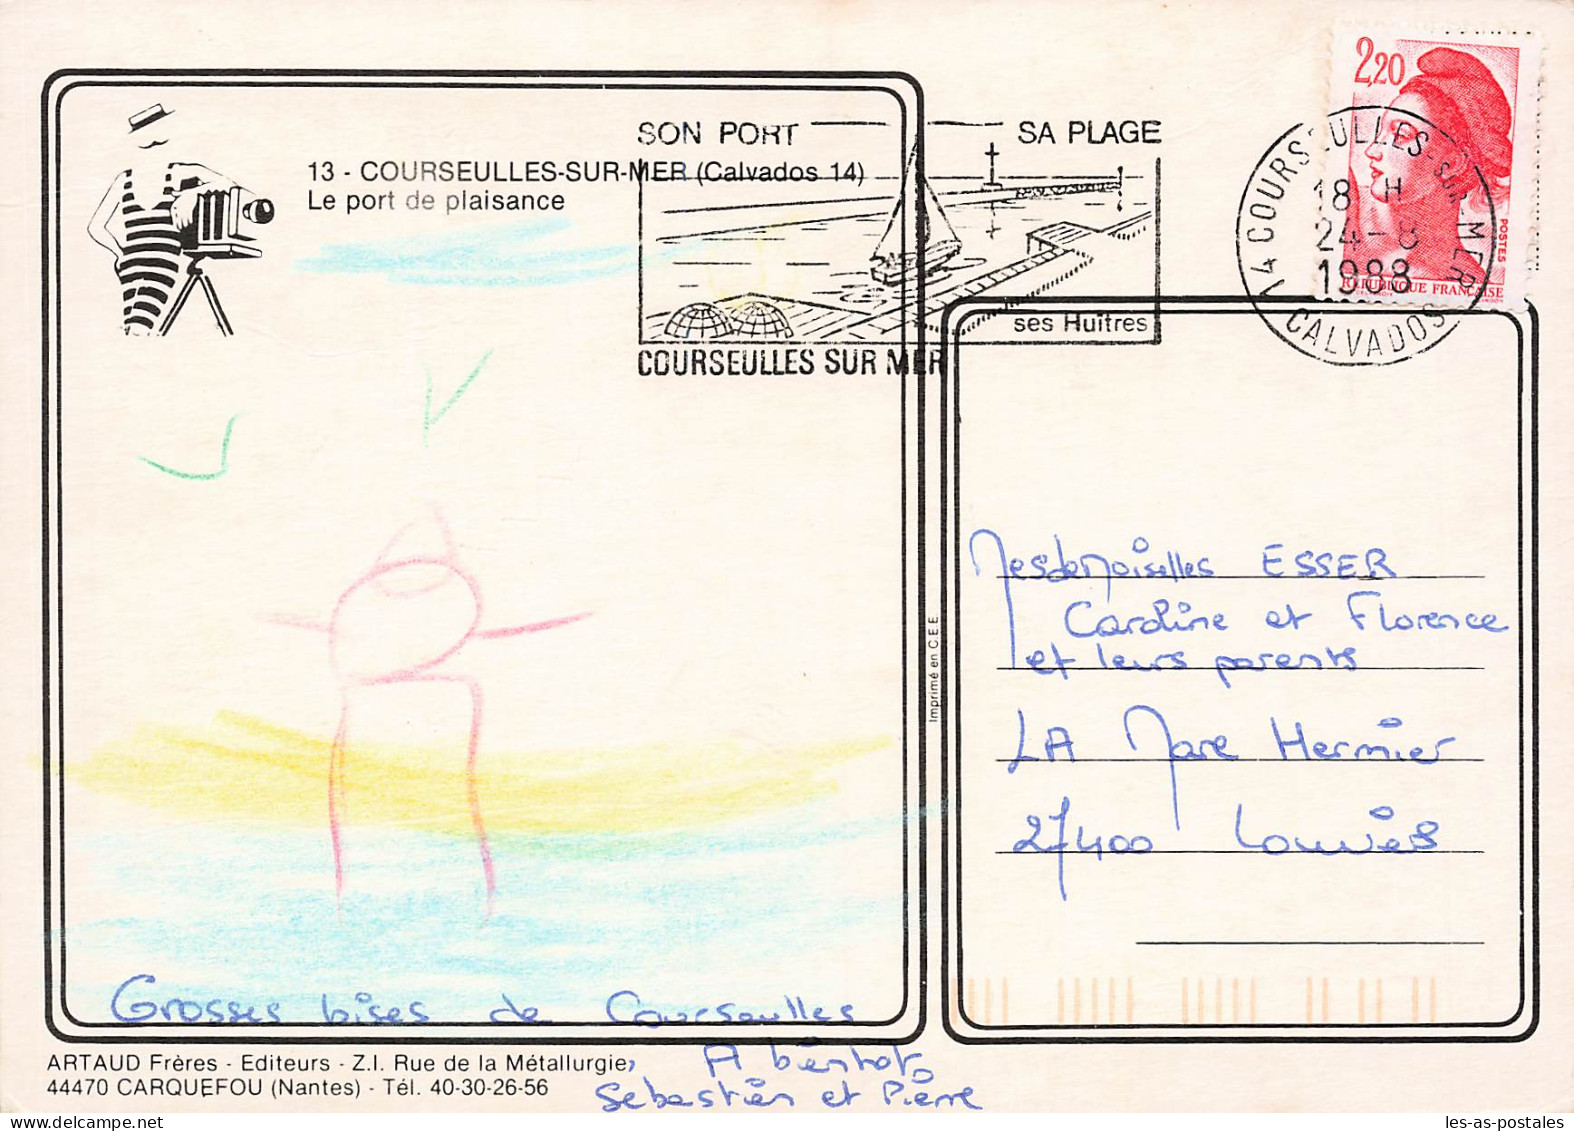 13 - COURSEULLES-SUR-MER (Calvados 14)
Le port de plaisance
SON PORT
SA PLAGE
ses Huîtres
COURSEULLES SUR MER
2,20
POSTES
REPUBLIQUE FRANÇAISE
14 COURSEULLES-SUR-MER
18 H
24-8
1988
CALVADOS
Mesdemoiselles ESSER
Caroline et Florence
et leurs parents
LA Mare Hermier
27400 Louviers
Imprimé en CEE
Grosses bises de Courseulles
A bientot,
Sébastien et Pierre
ARTAUD Frères - Editeurs - Z.I. Rue de la Métallurgie,
44470 CARQUEFOU (Nantes) - Tél. 40-30-26-56
les-as-postales